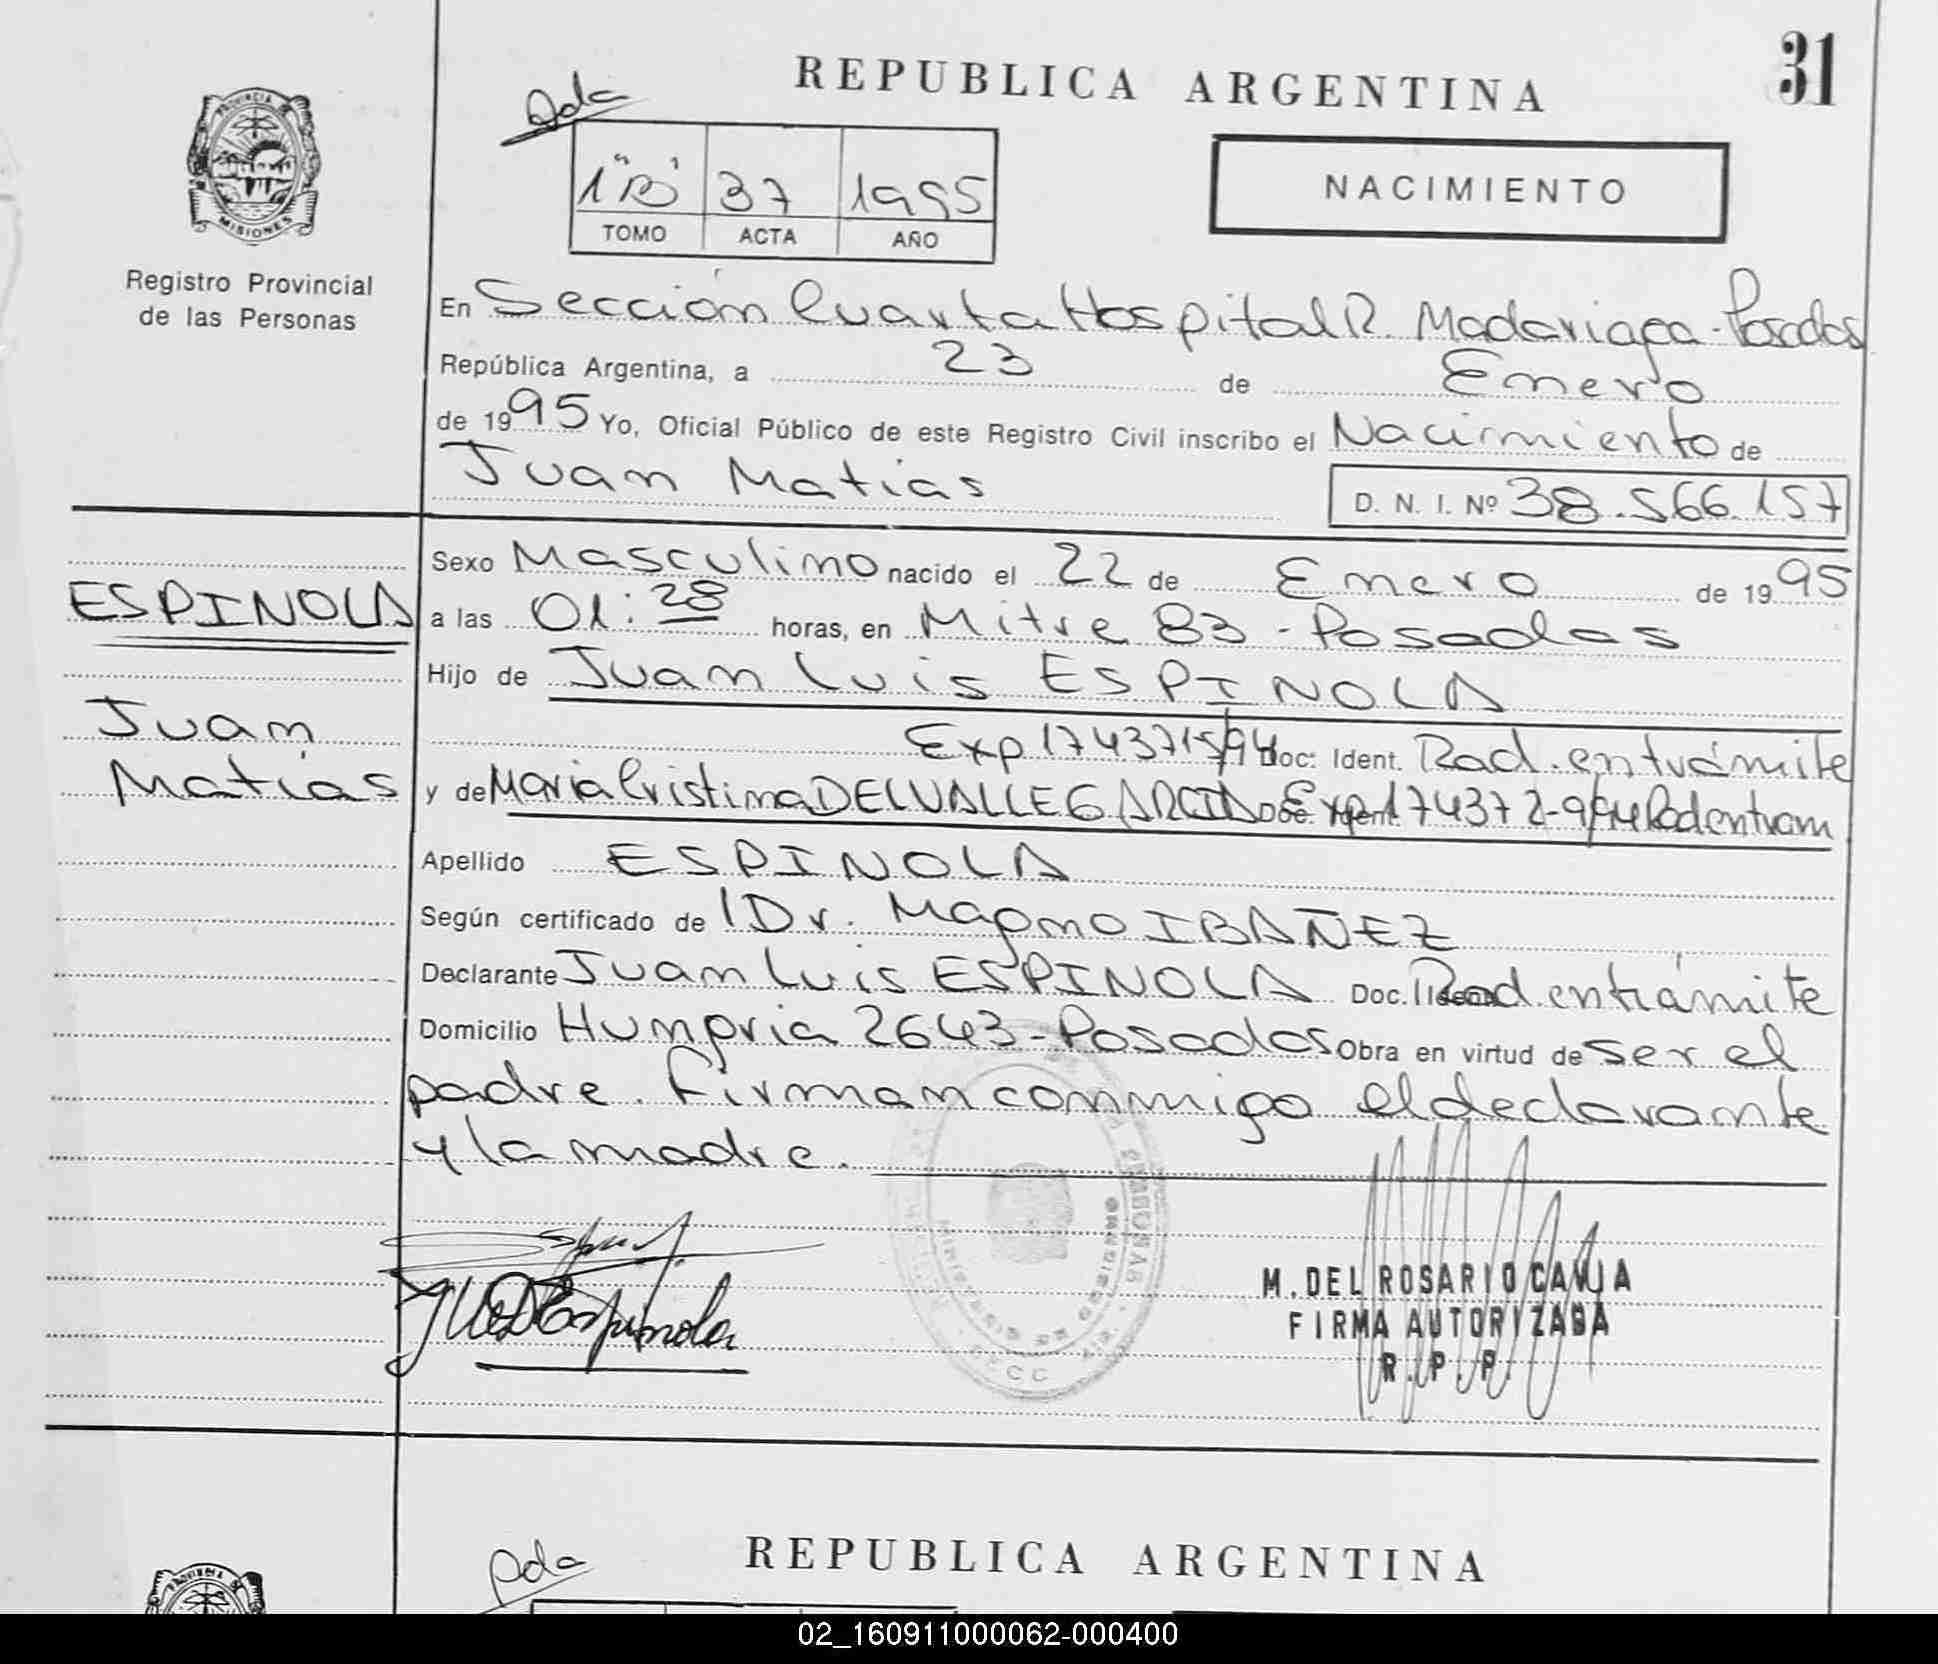 31
REPUBLICA ARGENTINA
Pda
1 "B" 37 1995
TOMO ACTA AÑO
NACIMIENTO
PROVINCIA DE
MISIONES
Registro Provincial
de las Personas
En Sección Cuarta Hospital R. Madariaga - Posadas
República Argentina, a 23 de Enero
de 1995 Yo, Oficial Público de este Registro Civil inscribo el Nacimiento de
Juan Matias
D. N. I. Nº 38.566.157
ESPINOLA
Juan
Matías
Sexo Masculino nacido el 22 de Enero de 1995
a las 01:28 horas, en Mitre 83 - Posadas
Hijo de Juan Luis ESPINOLA
Exp. 1743715/94 Doc: Ident. Rad. en trámite
y de Maria Cristina DEL VALLE GARCIA Doc. Ident. Exp. 174372-9/94 Rad en tram
Apellido ESPINOLA
Según certificado de Dr. Magno IBAÑEZ
Declarante Juan Luis ESPINOLA Doc. Rad. en trámite
Domicilio Hungria 2643 - Posadas Obra en virtud de ser el
padre. Firman conmigo el declarante
y la madre.
Espinola
M. DEL ROSARIO
FIRMA AUTORIZADA
R.P.P.
Pda
REPUBLICA ARGENTINA
02_160911000062-000400